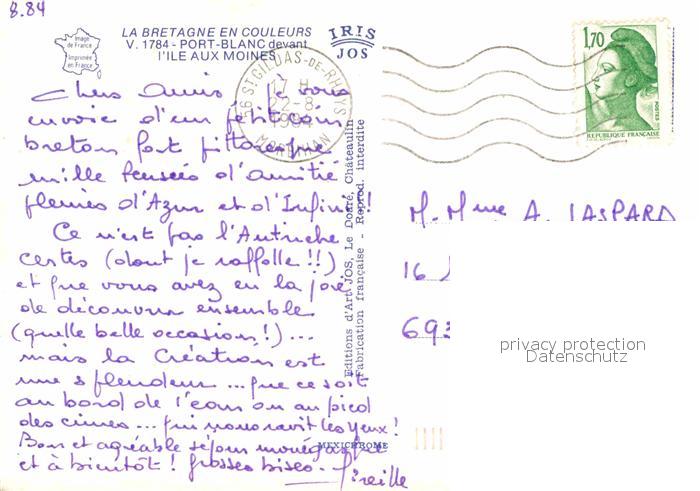 8.84
LA BRETAGNE EN COULEURS
V. 1784 - PORT-BLANC devant
l'ILE AUX MOINES
Image
de France
Imprimée
en France
IRIS
JOS
56 ST GILDAS-DE-RHUYS
17 H
22-8
1984
MORBIHAN
1,70
POSTES
REPUBLIQUE FRANÇAISE
Chers Amis je vous
envoie d'un petit coin
breton fort pittoresque
mille pensées d'amitié
pleines d'Azur et d'Infini!
Ce n'est pas l'Autriche
certes (dont je raffolle!!)
et que vous avez eu la joie
de découvrir ensemble
(quelle belle occasion!)...
mais la Création est
une splendeur... que ce soit
au bord de l'eau ou au pied
des cimes... qui nous ravit les yeux!
Bon et agréable séjour monégasque
et à bientôt! grosses bises. Mireille
Editions d'Art JOS, Le Doaré, Châteaulin
Fabrication française - Reprod. interdite
MEXICHROME
M. Mme A. GASPARD
16
69
privacy protection
Datenschutz